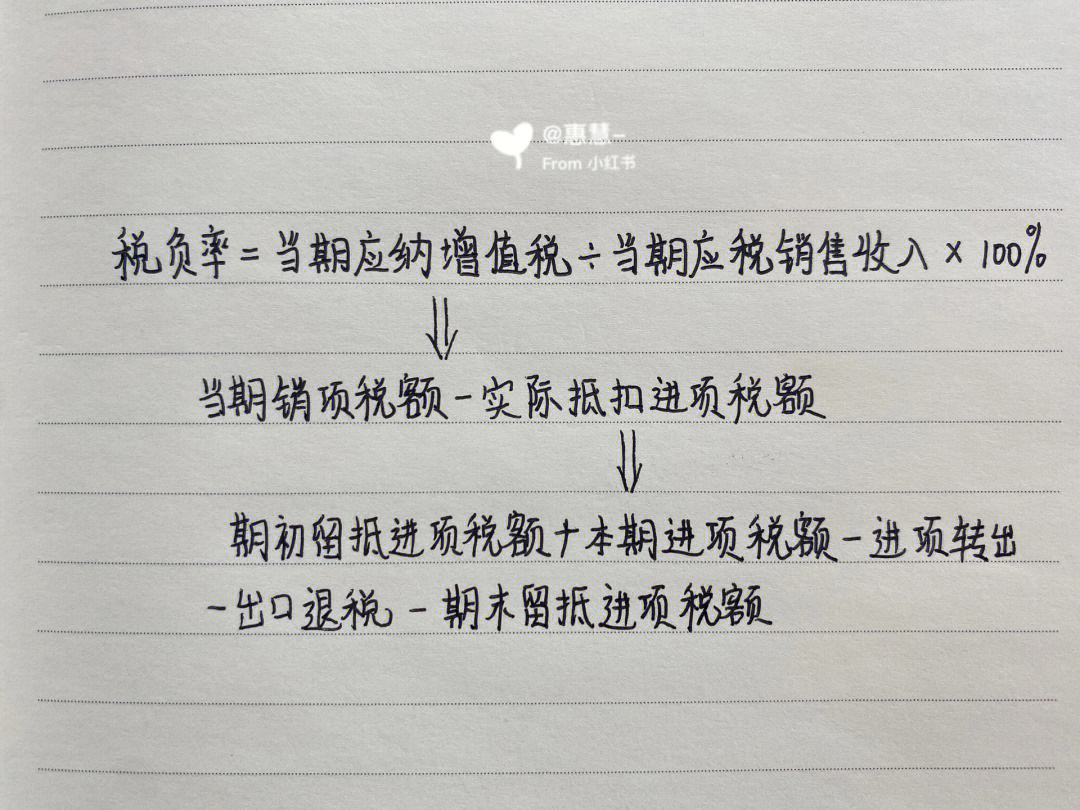 @惠慧_
From 小红书
税负率=当期应纳增值税÷当期应税销售收入×100%
⇓
当期销项税额-实际抵扣进项税额
⇓
期初留抵进项税额+本期进项税额-进项转出
-出口退税-期末留抵进项税额